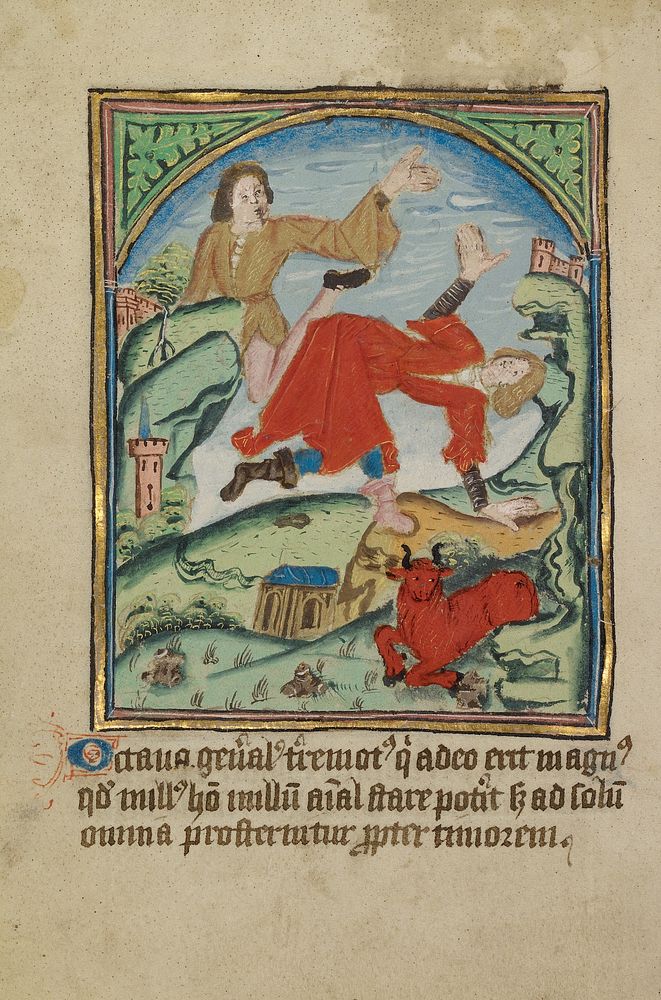 Octaua. gen̄al' t̄remot' q̄ adeo erit magn'
qd' mill' hō nullū aīal stare pot̄it s; ad solū
omnia prosternūtur ꝓpter timorem.